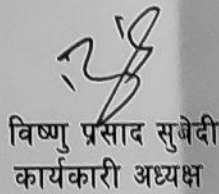 विष्णु प्रसाद सुवेदी
कार्यकारी अध्यक्ष